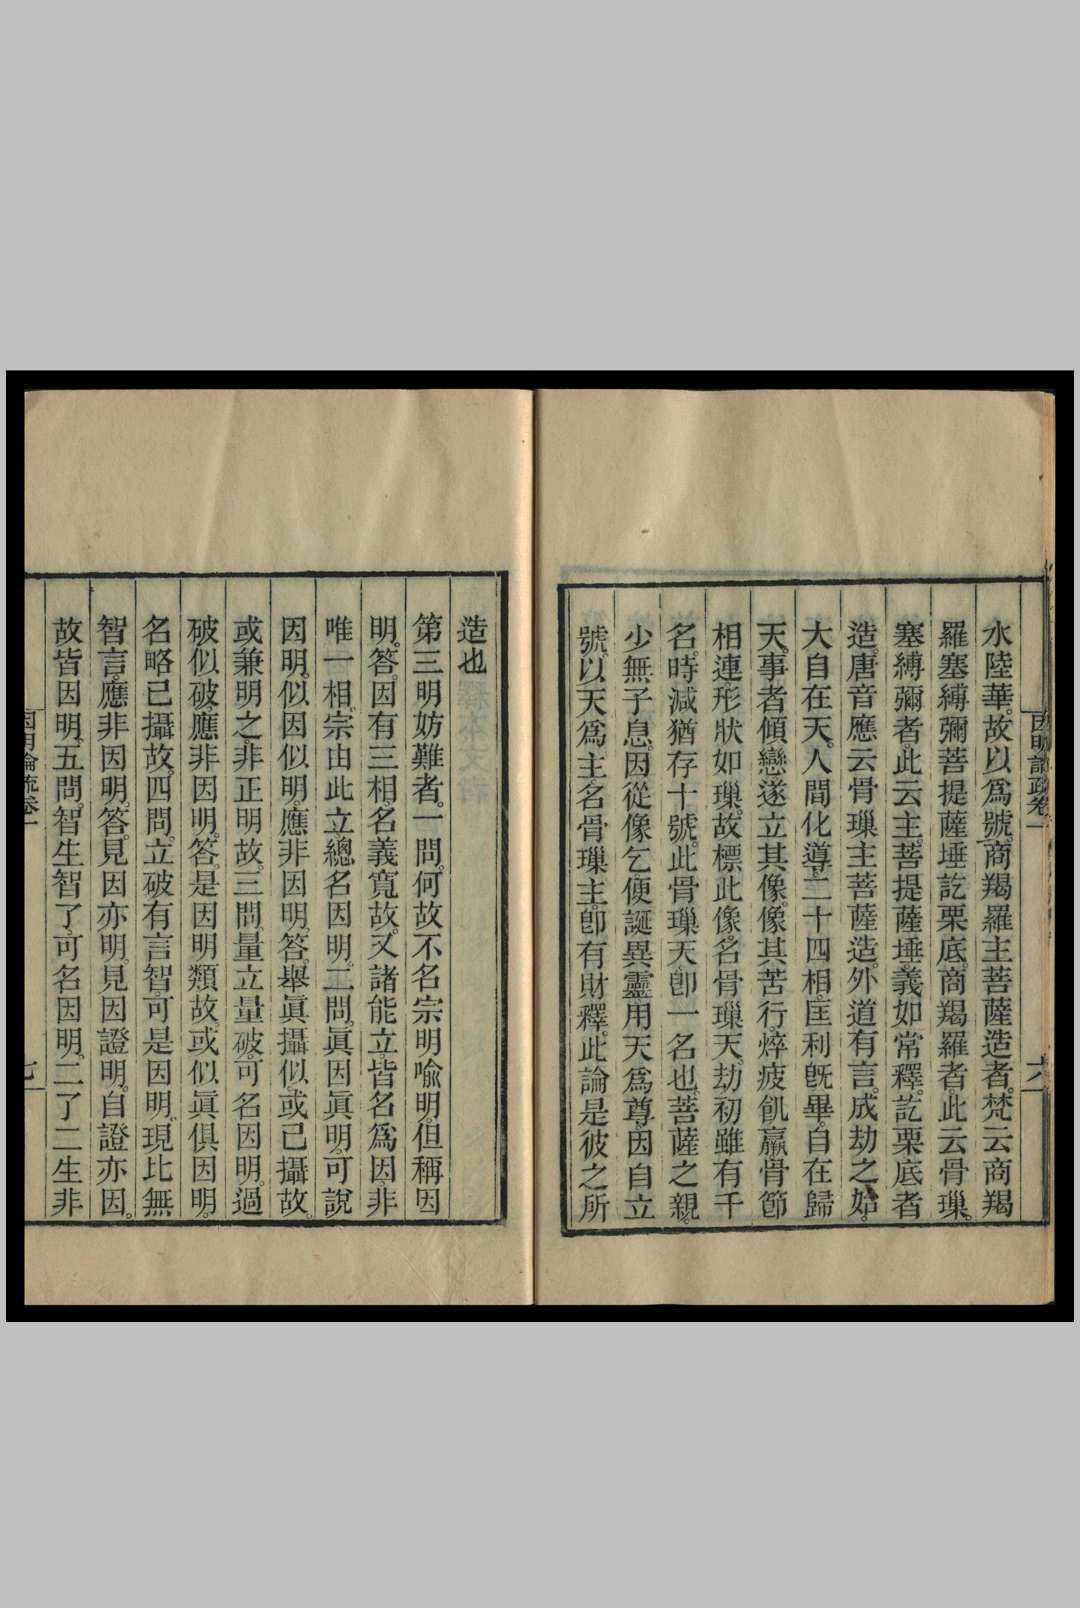 因明論疏卷一
六
水陸華。故以爲號。商羯羅主菩薩造者。梵云商羯
羅塞縛彌菩提薩埵訖栗底。商羯羅者。此云骨璅。
塞縛彌者。此云主。菩提薩埵。義如常釋。訖栗底者
造。唐音應云骨璅主菩薩造。外道有言。成劫之始。
大自在天。人間化導。二十四相。匡利旣畢。自在歸
天。事者傾戀。遂立其像。像其苦行。悴疲飢羸。骨節
相連。形狀如璅。故標此像。名骨璅天。劫初雖有千
名。時減猶存十號。此骨璅天。卽一名也。菩薩之親。
少無子息。因從像乞。便誕異靈。用天爲尊。因自立
號。以天爲主。名骨璅主。卽有財釋。此論是彼之所
造也
第三明妨難者。一問。何故不名宗明喩明。但稱因
明。答。因有三相。名義寬故。又諸能立。皆名爲因。非
唯一相。宗由此立。總名因明。二問。眞因眞明。可說
因明。似因似明。應非因明。答。舉眞攝似。或已攝故。
或兼明之。非正明故。三問。量立量破。可名因明。過
破似破。應非因明。答。是因明類故。或似眞俱因明。
名略已攝故。四問。立破有言智。可是因明。現比無
智言。應非因明。答。見因亦明。見因證明。自證亦因。
故皆因明。五問。智生智了。可名因明。二了二生。非
因明論疏卷一
七